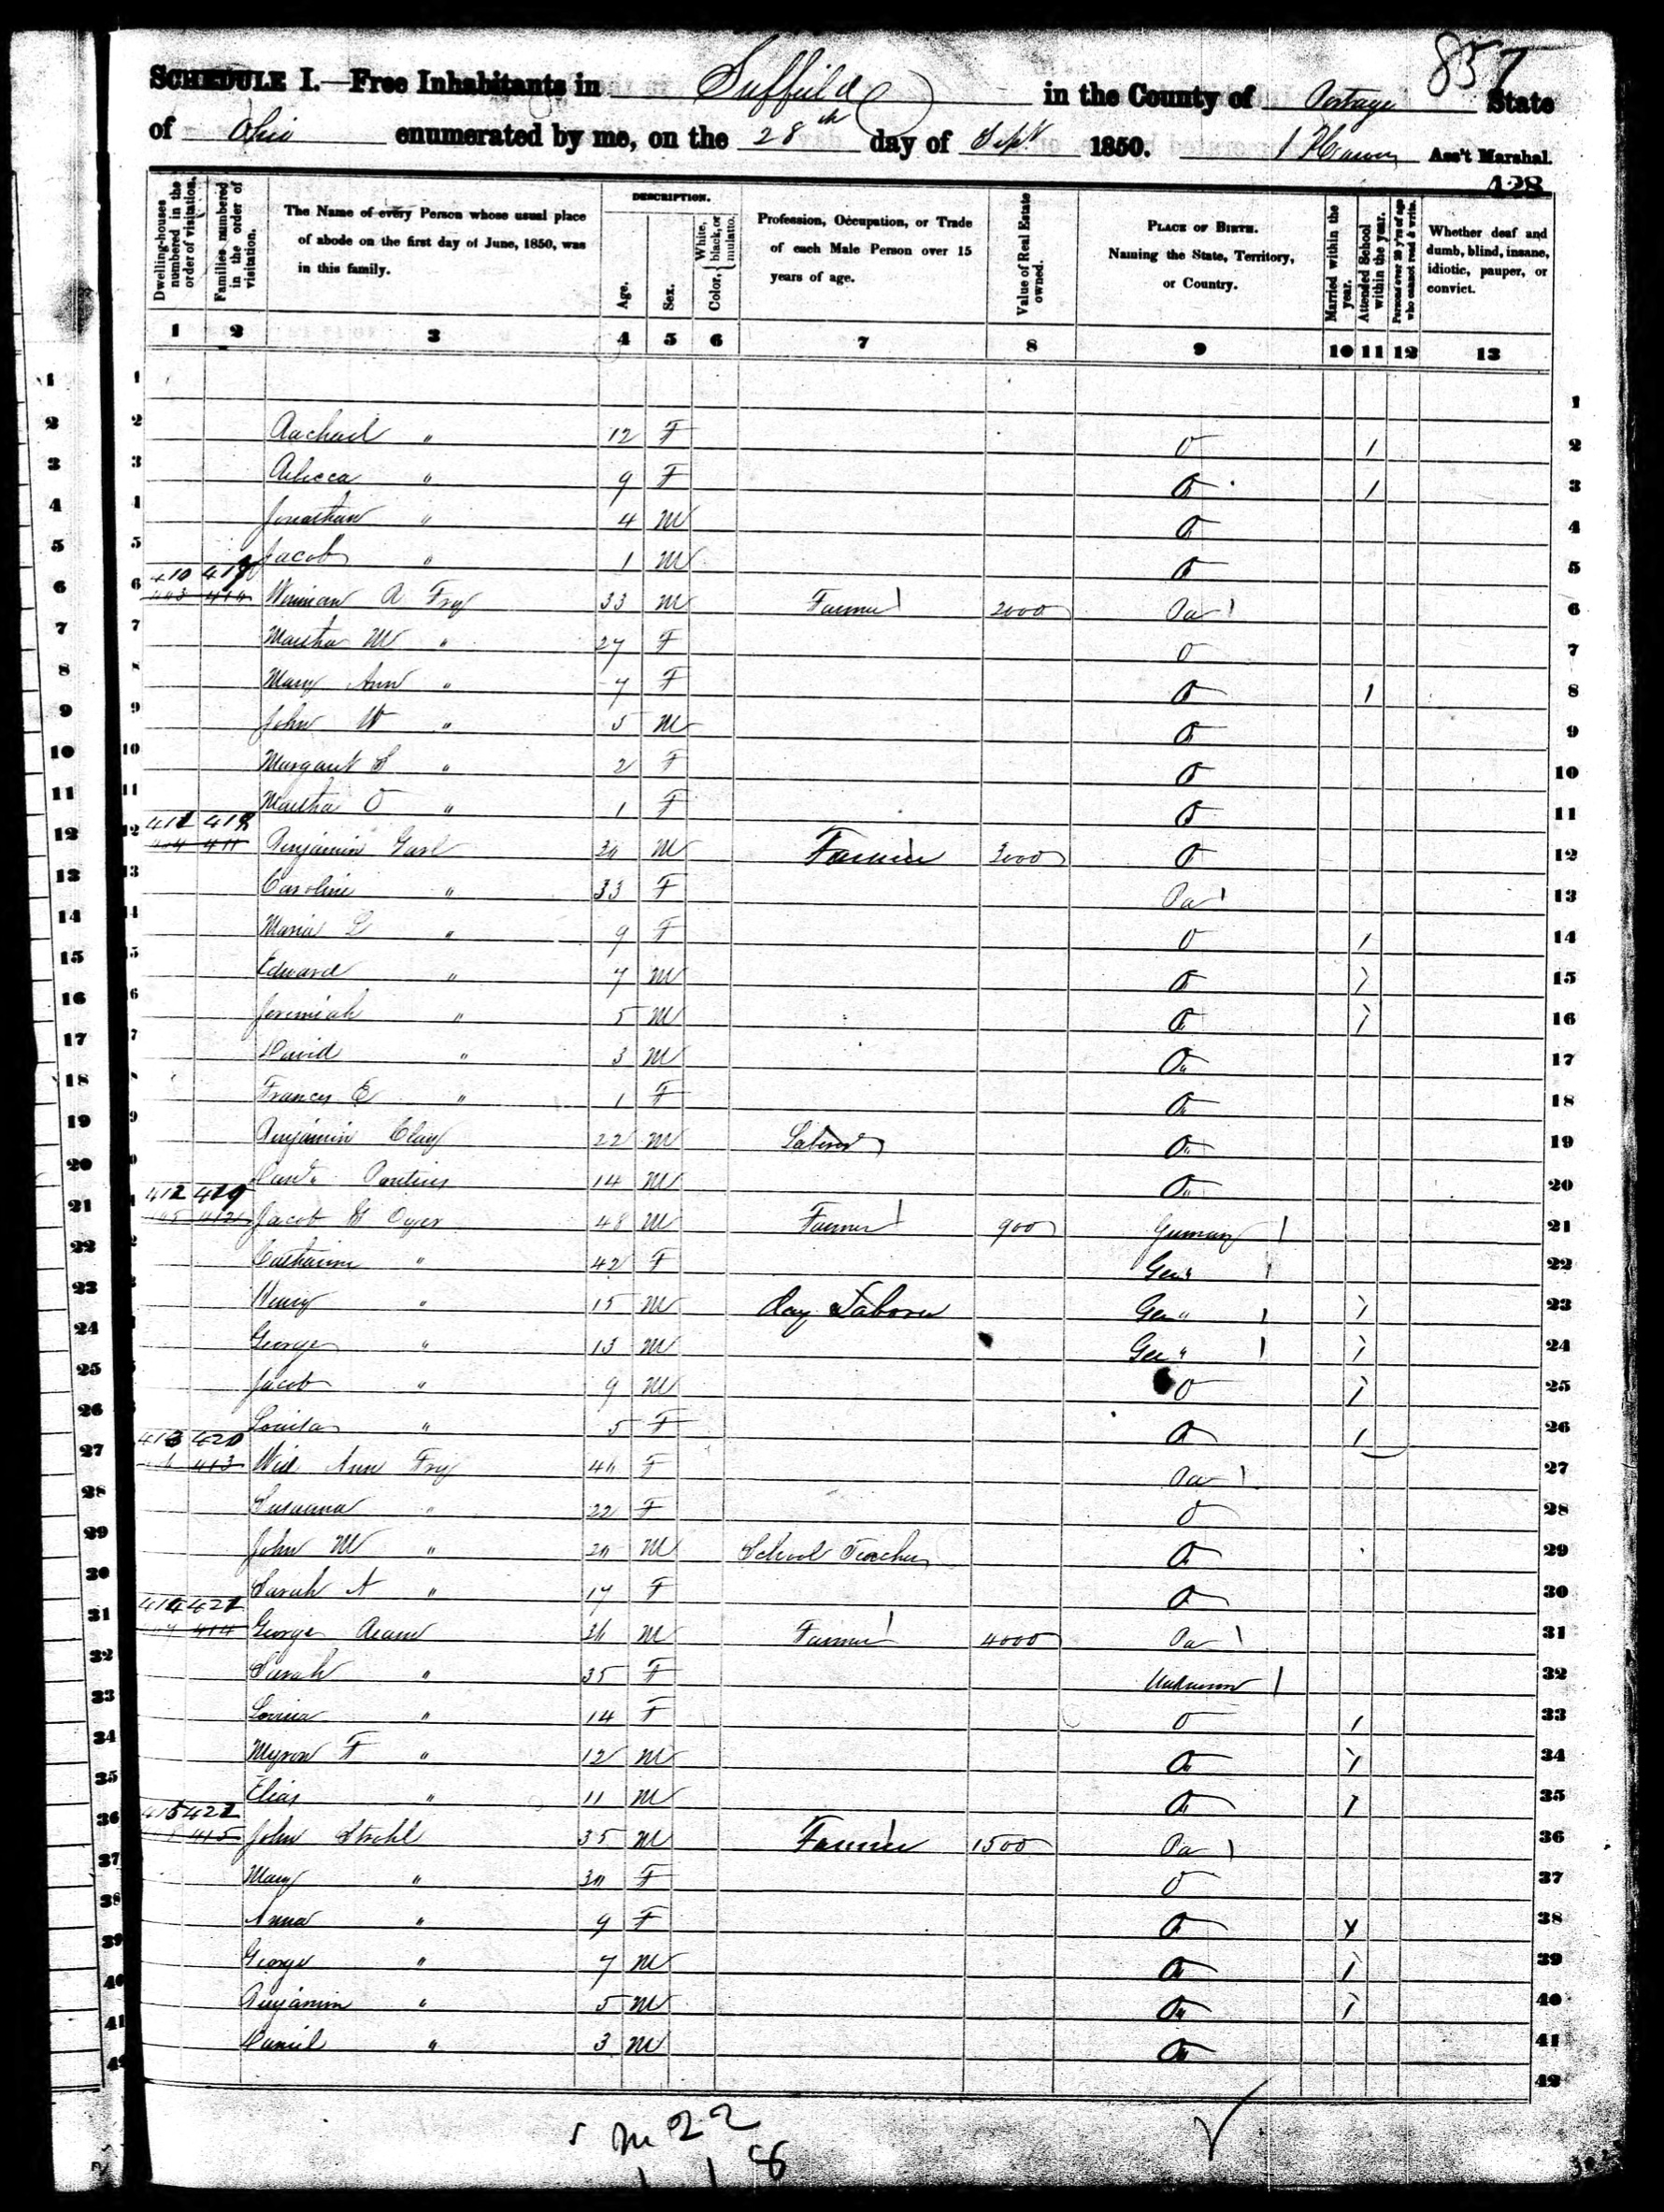 857
SCHEDULE I.—Free Inhabitants in Suffield in the County of Portage State
of Ohio enumerated by me, on the 28th day of Sept 1850. Ass't Marshal.
428
Dwelling-houses numbered in the order of visitation.
Families numbered in the order of visitation.
The Name of every Person whose usual place of abode on the first day of June, 1850, was in this family.
DESCRIPTION.
Age.
Sex.
Color, { White, black, or mulatto.
Profession, Occupation, or Trade of each Male Person over 15 years of age.
Value of Real Estate owned.
PLACE OF BIRTH. Naming the State, Territory, or Country.
Married within the year.
Attended School within the year.
Persons over 20 y'rs of age who cannot read & write.
Whether deaf and dumb, blind, insane, idiotic, pauper, or convict.
1 2 3 4 5 6 7 8 9 10 11 12 13
1
2 Rachael " 12 F O 1 2
3 Rebecca " 9 F O 1 3
4 Jonathan " 4 M O 4
5 Jacob " 1 M O 5
6 410 417 A Frey 33 M Farmer 2000 Pa 6
7 Martha M " 27 F O 7
8 Mary Ann " 7 F O 1 8
9 John W " 5 M O 9
10 Margaret S " 2 F O 10
11 Martha O " 1 F O 11
12 411 418 Benjamin M Farmer 3000 O 12
13 Caroline " 33 F Pa 13
14 Maria L " 9 F O 1 14
15 Edward " 7 M O 1 15
16 Jeremiah " 5 M O 1 16
17 David " 3 M O 17
18 Frances E " 1 F O 18
19 Benjamin Clay 22 M Laborer O 19
20 Pontius 14 M O 20
21 412 419 Jacob Oyer 48 M Farmer 900 Germany 21
22 Catharine " 42 F Ger " 22
23 Henry " 15 M Day Laborer Ger " 1 23
24 George " 13 M Ger " 1 24
25 Jacob " 9 M O 1 25
26 Louisa " 5 F O 1 26
27 413 420 Wid Ann Frey F Pa 27
28 Susanna " 22 F O 28
29 John M " M School Teacher O 29
30 Sarah A " 17 F O 30
31 414 421 George Ream M Farmer 4000 Pa 31
32 Sarah " 35 F Unknown 32
33 " 14 F O 1 33
34 Myron F " 12 M O 1 34
35 Elias " 11 M O 1 35
36 415 422 John Strohl 35 M Farmer 1500 Pa 36
37 Mary " F O 37
38 Anna " 9 F O 1 38
39 George " 7 M O 1 39
40 Benjamin " 5 M O 1 40
41 Daniel " 3 M O 41
42
m 22
18